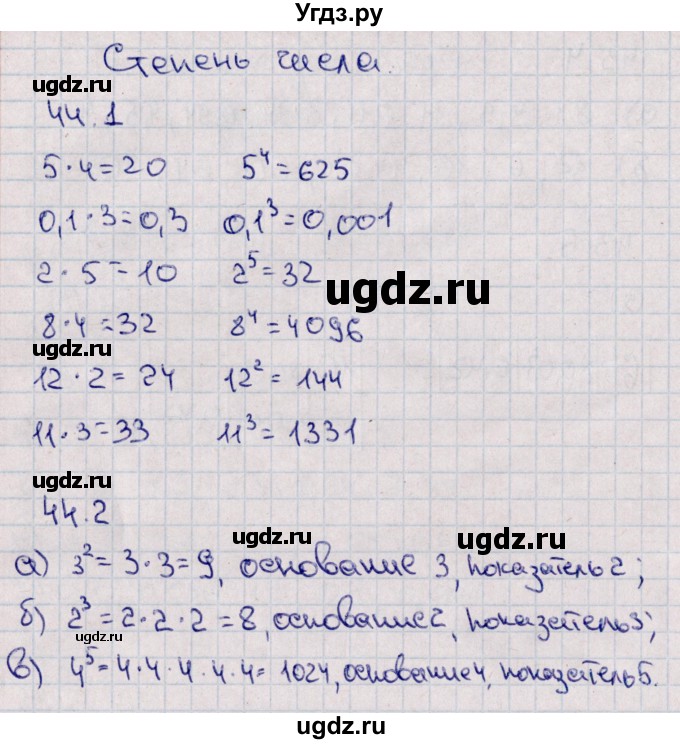 Угдз.ру
Степень числа.
ugdz.ru
ugdz.ru
44.1
5·4=20 5⁴=625
0,1·3=0,3 0,1³=0,001
2·5=10 2⁵=32
ugdz.ru
8·4=32 8⁴=4096
ugdz.ru
12·2=24 12²=144
11·3=33 11³=1331
ugdz.ru
44.2
ugdz.ru
а) 3²=3·3=9, основание 3, показатель 2;
ugdz.ru
б) 2³=2·2·2=8, основание 2, показатель 3;
ugdz.ru
в) 4⁵=4·4·4·4·4=1024, основание 4, показатель 5.
ugdz.ru
ugdz.ru